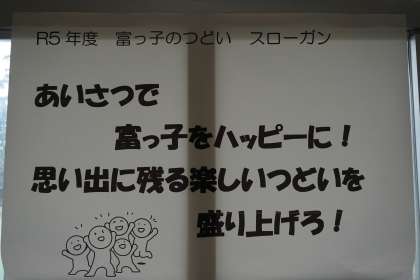 R5年度　富っ子のつどい　スローガン
あいさつで
富っ子をハッピーに！
思い出に残る楽しいつどいを
盛り上げろ！